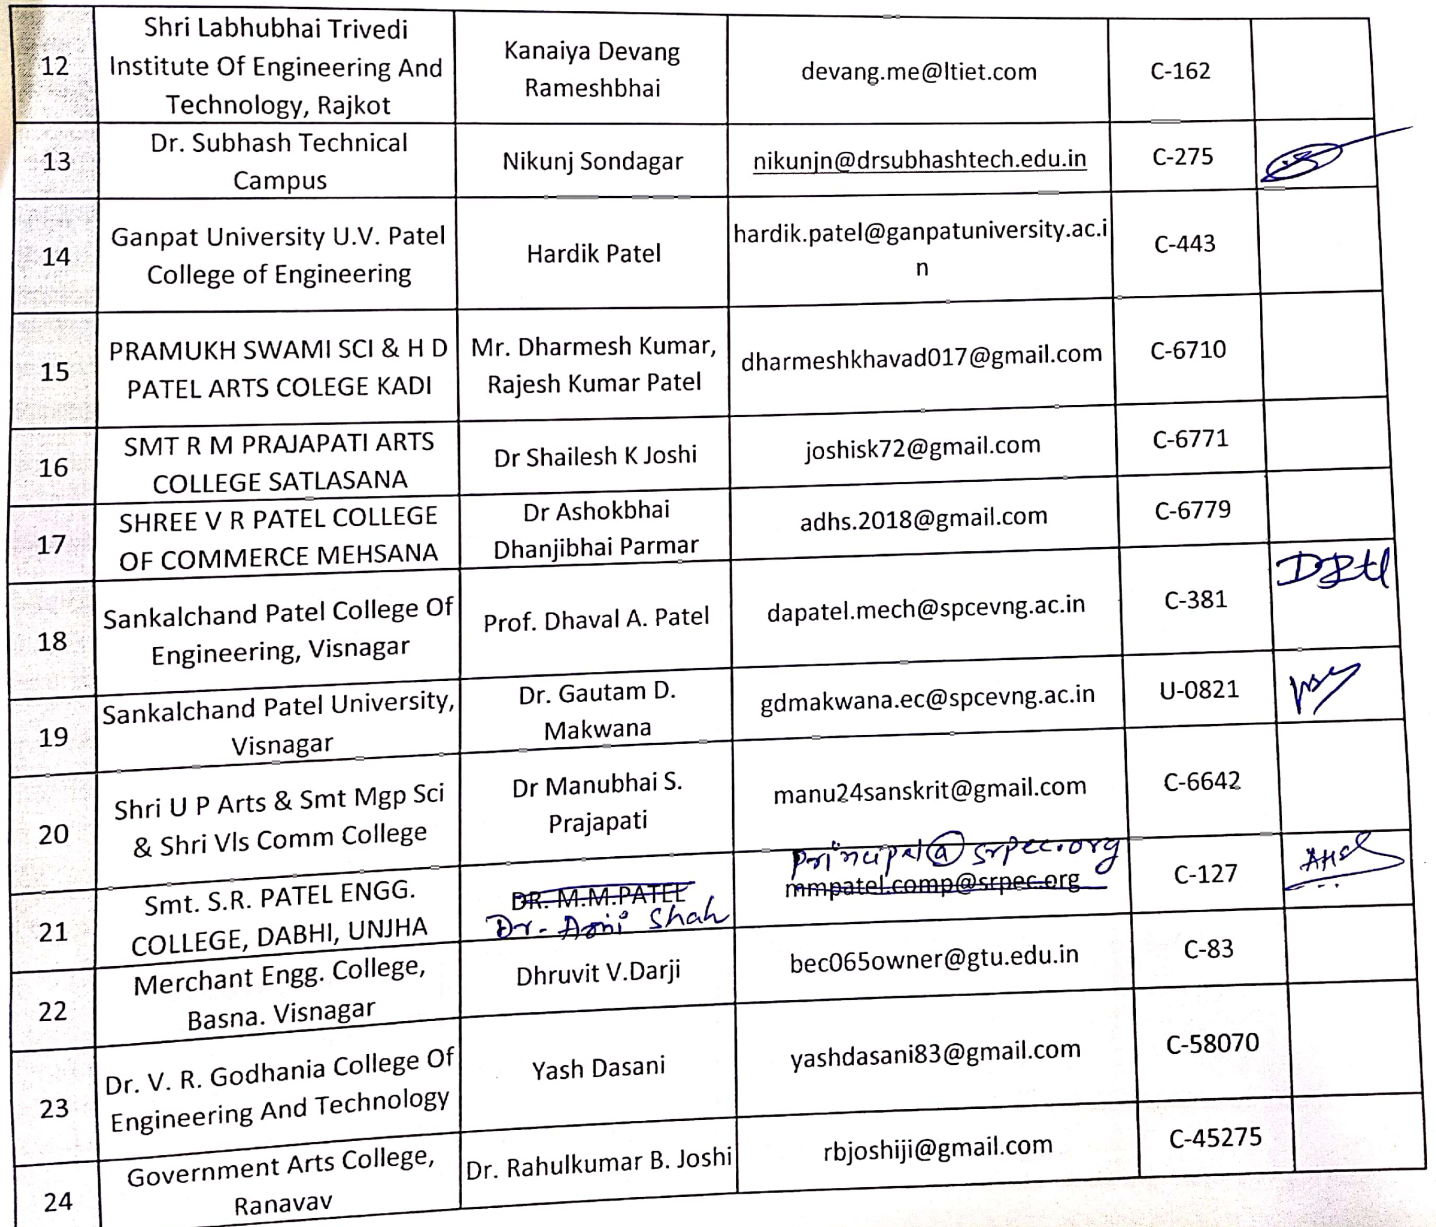 12
Shri Labhubhai Trivedi
Institute Of Engineering And
Technology, Rajkot
Kanaiya Devang
Rameshbhai
devang.me@ltiet.com
C-162
13
Dr. Subhash Technical
Campus
Nikunj Sondagar
nikunjn@drsubhashtech.edu.in
C-275
14
Ganpat University U.V. Patel
College of Engineering
Hardik Patel
hardik.patel@ganpatuniversity.ac.i
n
C-443
15
PRAMUKH SWAMI SCI & H D
PATEL ARTS COLEGE KADI
Mr. Dharmesh Kumar,
Rajesh Kumar Patel
dharmeshkhavad017@gmail.com
C-6710
16
SMT R M PRAJAPATI ARTS
COLLEGE SATLASANA
Dr Shailesh K Joshi
joshisk72@gmail.com
C-6771
17
SHREE V R PATEL COLLEGE
OF COMMERCE MEHSANA
Dr Ashokbhai
Dhanjibhai Parmar
adhs.2018@gmail.com
C-6779
18
Sankalchand Patel College Of
Engineering, Visnagar
Prof. Dhaval A. Patel
dapatel.mech@spcevng.ac.in
C-381
19
Sankalchand Patel University,
Visnagar
Dr. Gautam D.
Makwana
gdmakwana.ec@spcevng.ac.in
U-0821
20
Shri U P Arts & Smt Mgp Sci
& Shri Vls Comm College
Dr Manubhai S.
Prajapati
manu24sanskrit@gmail.com
C-6642
21
Smt. S.R. PATEL ENGG.
COLLEGE, DABHI, UNJHA
DR. M.M.PATEL
Dr. Shah
Principal@srpec.org
mmpatel.comp@srpec.org
C-127
22
Merchant Engg. College,
Basna. Visnagar
Dhruvit V.Darji
bec065owner@gtu.edu.in
C-83
23
Dr. V. R. Godhania College Of
Engineering And Technology
Yash Dasani
yashdasani83@gmail.com
C-58070
24
Government Arts College,
Ranavav
Dr. Rahulkumar B. Joshi
rbjoshiji@gmail.com
C-45275